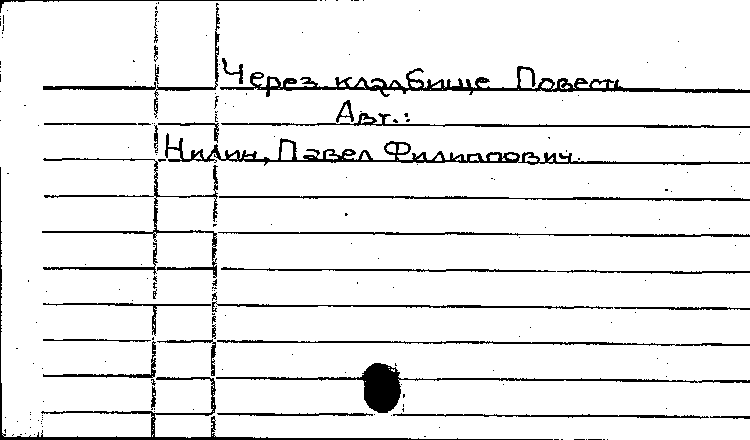 Через кладбище Повесть
Авт.:
Нилин, Павел Филиппович.